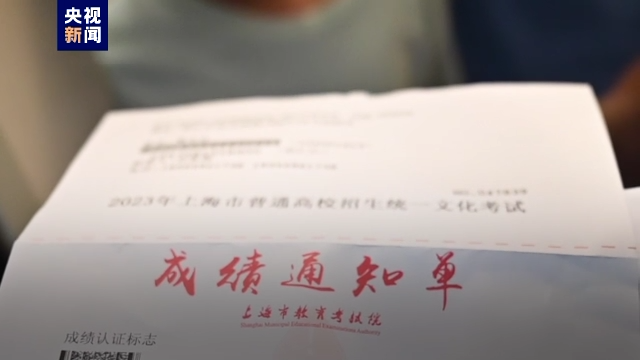 央视
新闻
2023年上海市普通高校招生统一文化考试
成绩通知单
上海市教育考试院
Shanghai Municipal Educational Examinations Authority
成绩认证标志